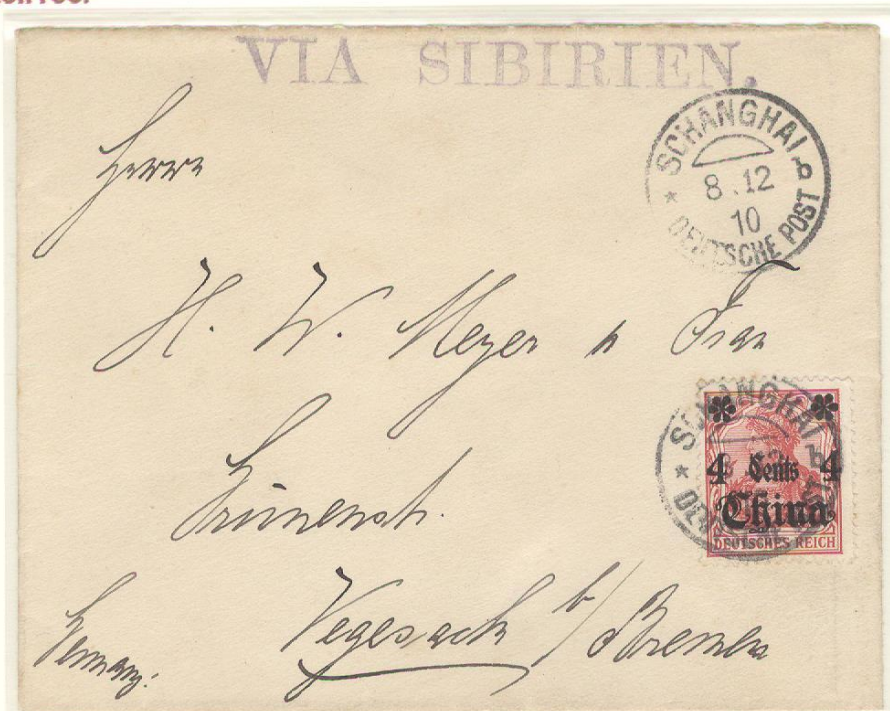 VIA SIBIRIEN.
SCHANGHAI b
8.12
10
* DEUTSCHE POST
Herrn
H. W. Meyer u Frau
Grünenstr.
Vegesack b/Bremen
Germany.
SCHANGHAI b
4 Cents 4
China
DEUTSCHES REICH